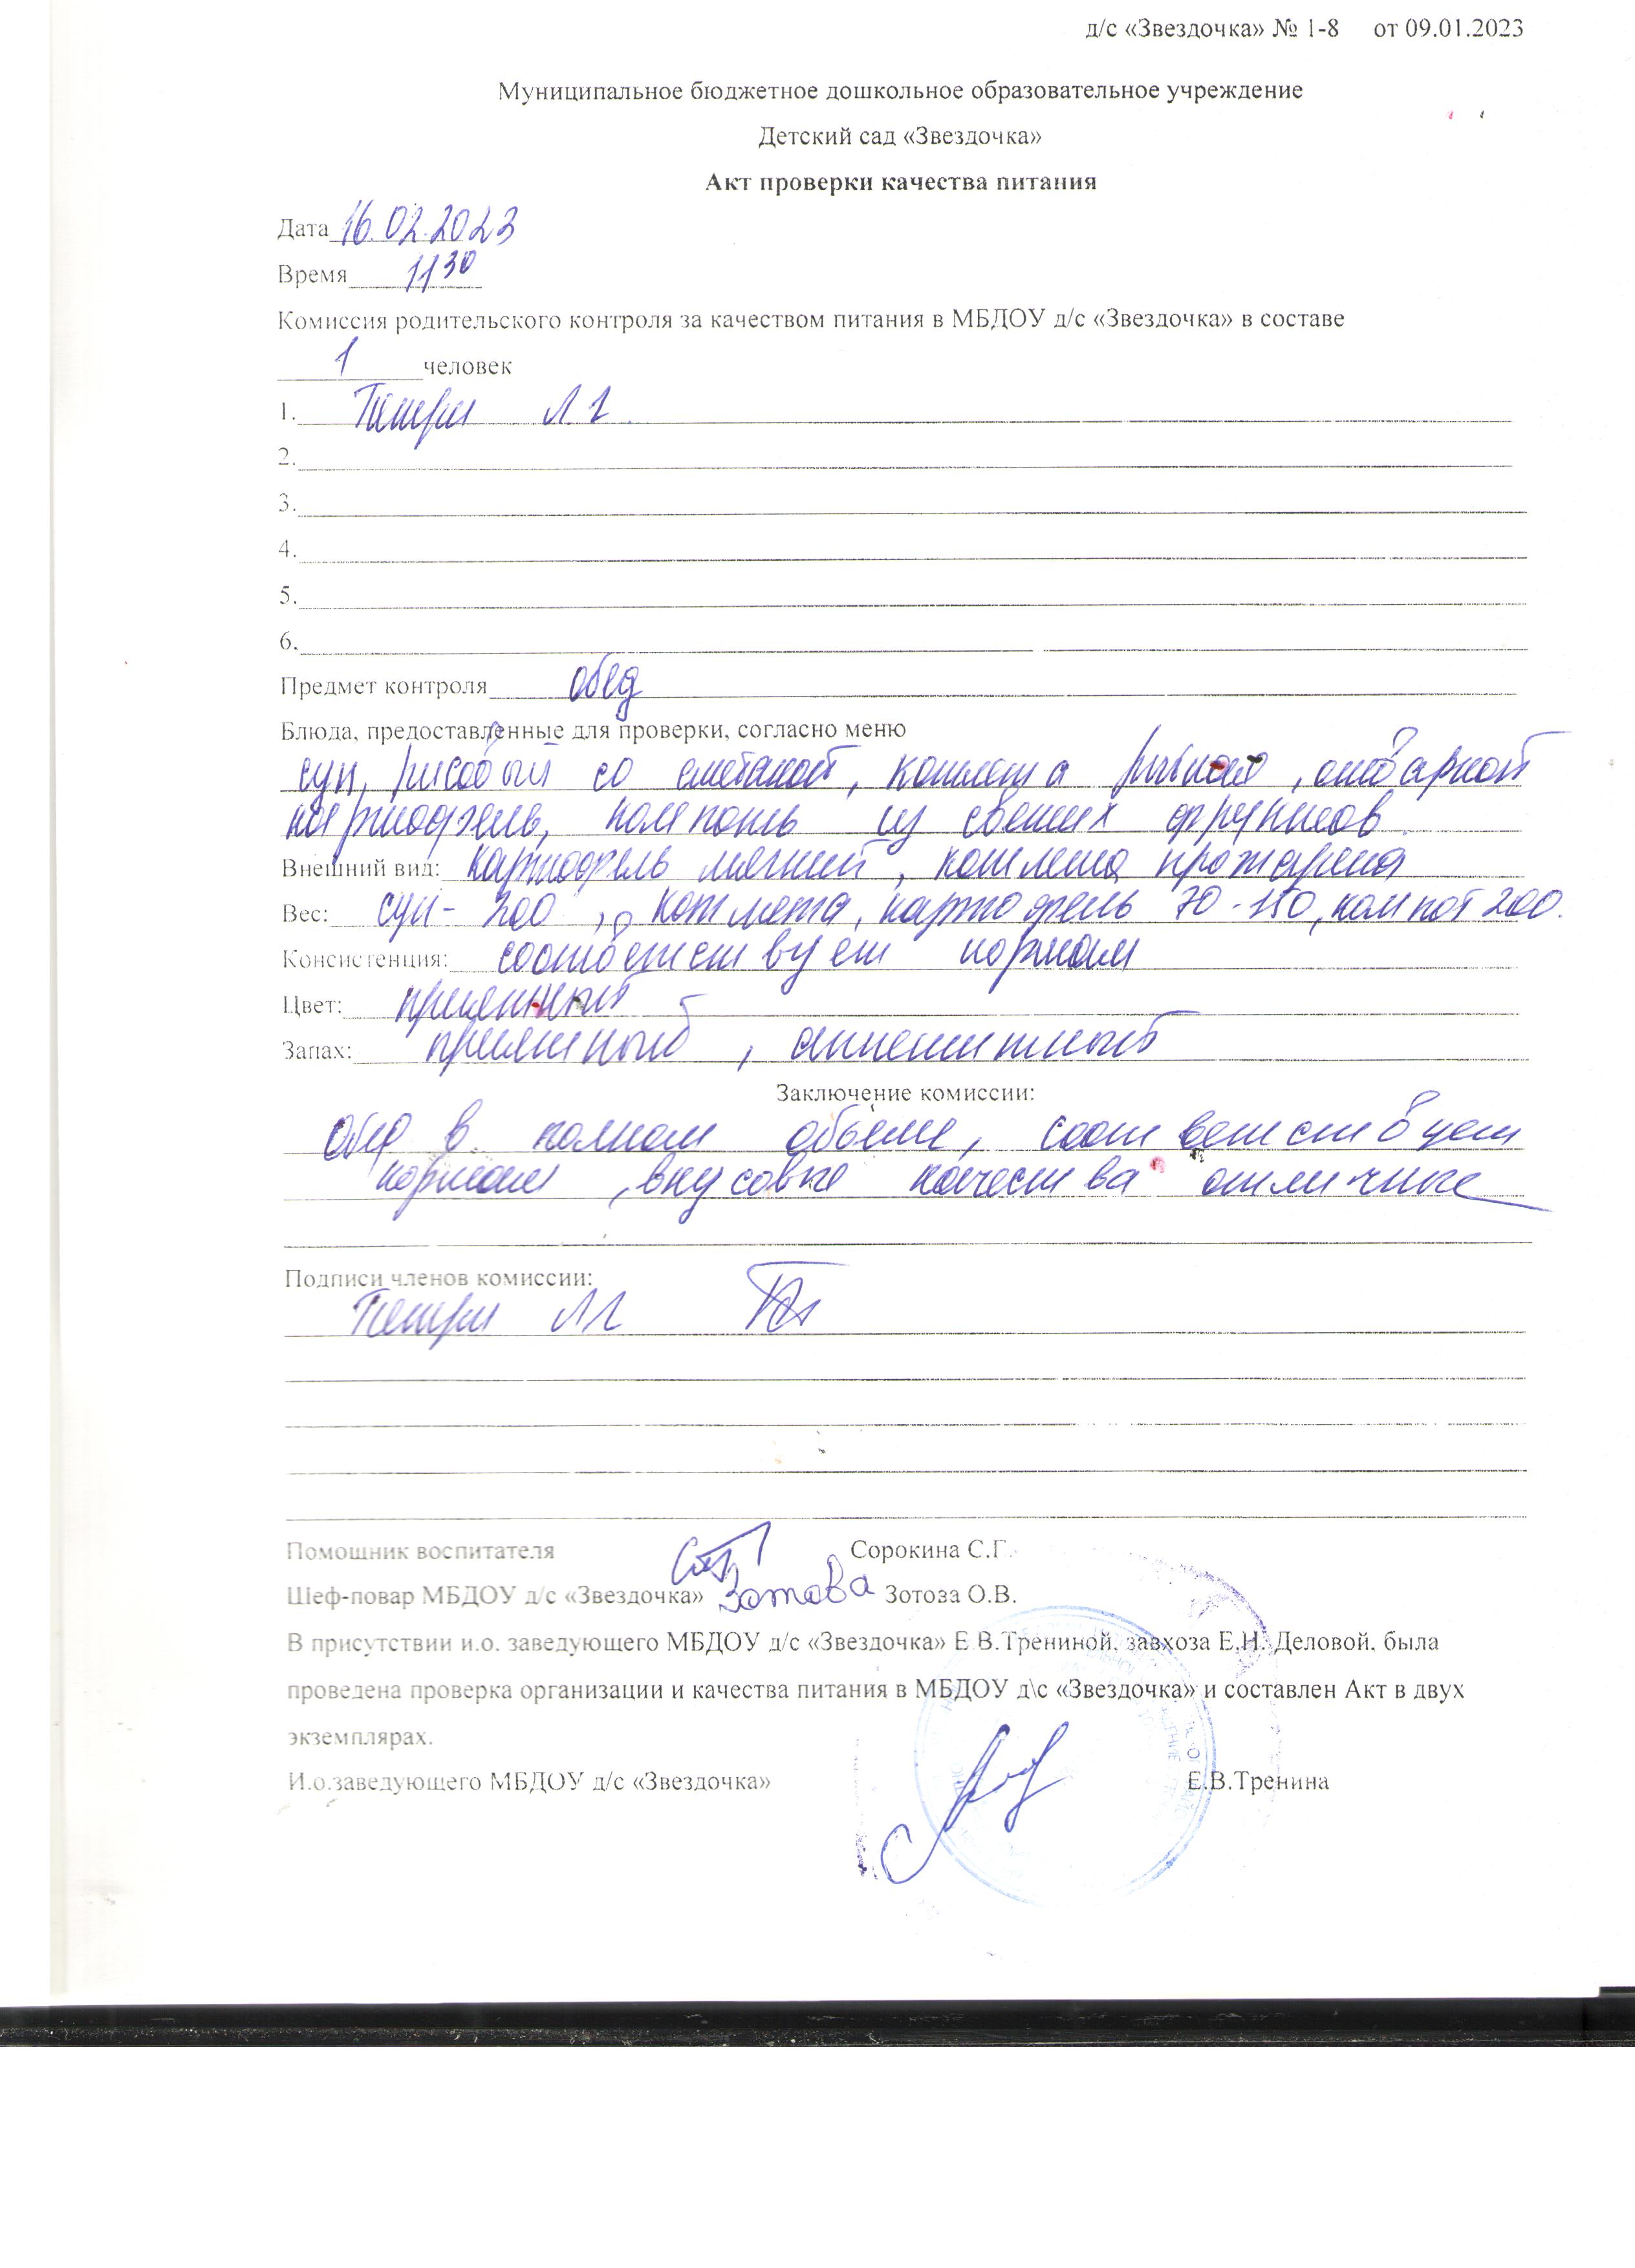 д/с «Звездочка» № 1-8 от 09.01.2023
Муниципальное бюджетное дошкольное образовательное учреждение
Детский сад «Звездочка»
Акт проверки качества питания
Дата 16.02.2023
Время 11 30
Комиссия родительского контроля за качеством питания в МБДОУ д/с «Звездочка» в составе
1 человек
1. Петри Л Г
2.
3.
4.
5.
6.
Предмет контроля обед
Блюда, предоставленные для проверки, согласно меню
суп рисовый со сметаной, котлета рыбная, отварной
картофель, компоть из свежих фруктов
Внешний вид: картофель мягкий, котлета прожарена
Вес: суп - 200, котлета, картофель 70 - 150, компот 200.
Консистенция: соответствует нормам
Цвет: приятный
Запах: приятный, аппетитный
Заключение комиссии:
Обед в полном объеме, соответствует
нормам, вкусовые качества отличные
Подписи членов комиссии:
Петри Л Г
Помощник воспитателя Сорокина С.Г.
Шеф-повар МБДОУ д/с «Звездочка» Зотова Зотоза О.В.
В присутствии и.о. заведующего МБДОУ д/с «Звездочка» Е.В.Трениной, завхоза Е.Н. Деловой, была
проведена проверка организации и качества питания в МБДОУ д\с «Звездочка» и составлен Акт в двух
экземплярах.
И.о.заведующего МБДОУ д/с «Звездочка» Е.В.Тренина